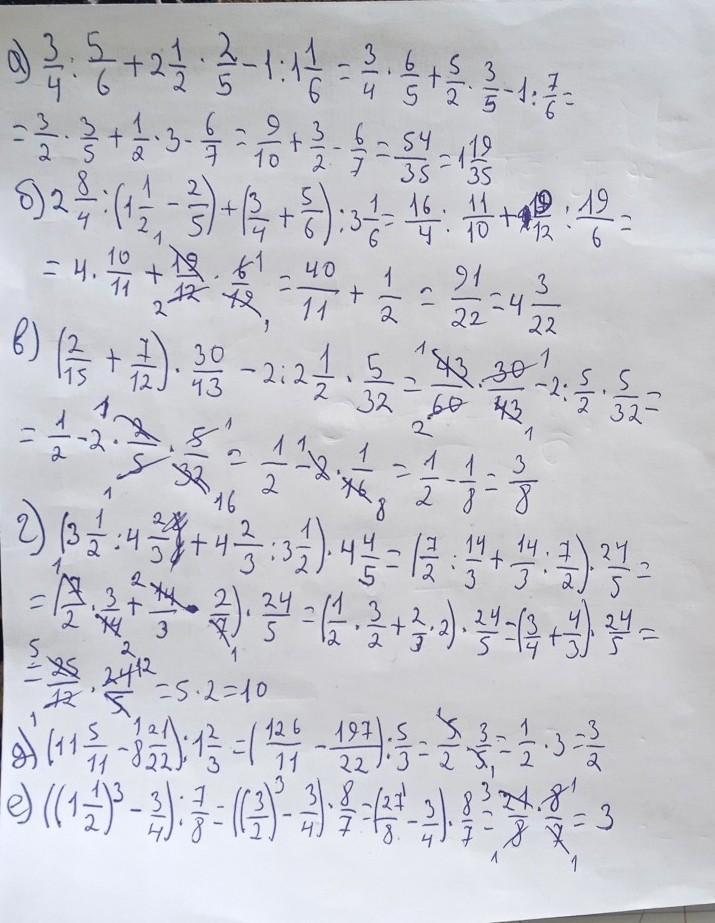 а) 3/4 : 5/6 + 2 1/2 · 2/5 − 1 : 1 1/6 = 3/4 · 6/5 + 5/2 · 3/5 − 1 : 7/6 =
= 3/2 · 3/5 + 1/2 · 3 − 6/7 = 9/10 + 3/2 − 6/7 = 54/35 = 1 19/35
б) 2 8/4 : (1 1/2 − 2/5) + (3/4 + 5/6) : 3 1/6 = 16/4 : 11/10 + 19/12 : 19/6 =
= 4 · 10/11 + 19/12 · 6/19 = 40/11 + 1/2 = 91/22 = 4 3/22
в) (2/15 + 7/12) · 30/43 − 2 : 2 1/2 · 5/32 = 43/60 · 30/43 − 2 : 5/2 · 5/32 =
= 1/2 − 2 · 2/5 · 5/32 = 1/2 − 2 · 1/16 = 1/2 − 1/8 = 3/8
г) (3 1/2 : 4 2/3 + 4 2/3 : 3 1/2) · 4 4/5 = (7/2 : 14/3 + 14/3 : 7/2) · 24/5 =
= (7/2 · 3/14 + 14/3 · 2/7) · 24/5 = (1/2 · 3/2 + 2/3 · 2) · 24/5 = (3/4 + 4/3) · 24/5 =
= 25/12 · 24/5 = 5 · 2 = 10
д) (11 5/11 − 8 21/22) : 1 2/3 = (126/11 − 197/22) : 5/3 = 5/2 · 3/5 = 1/2 · 3 = 3/2
е) ((1 1/2)³ − 3/4) : 7/8 = ((3/2)³ − 3/4) · 8/7 = (27/8 − 3/4) · 8/7 = 21/8 · 8/7 = 3